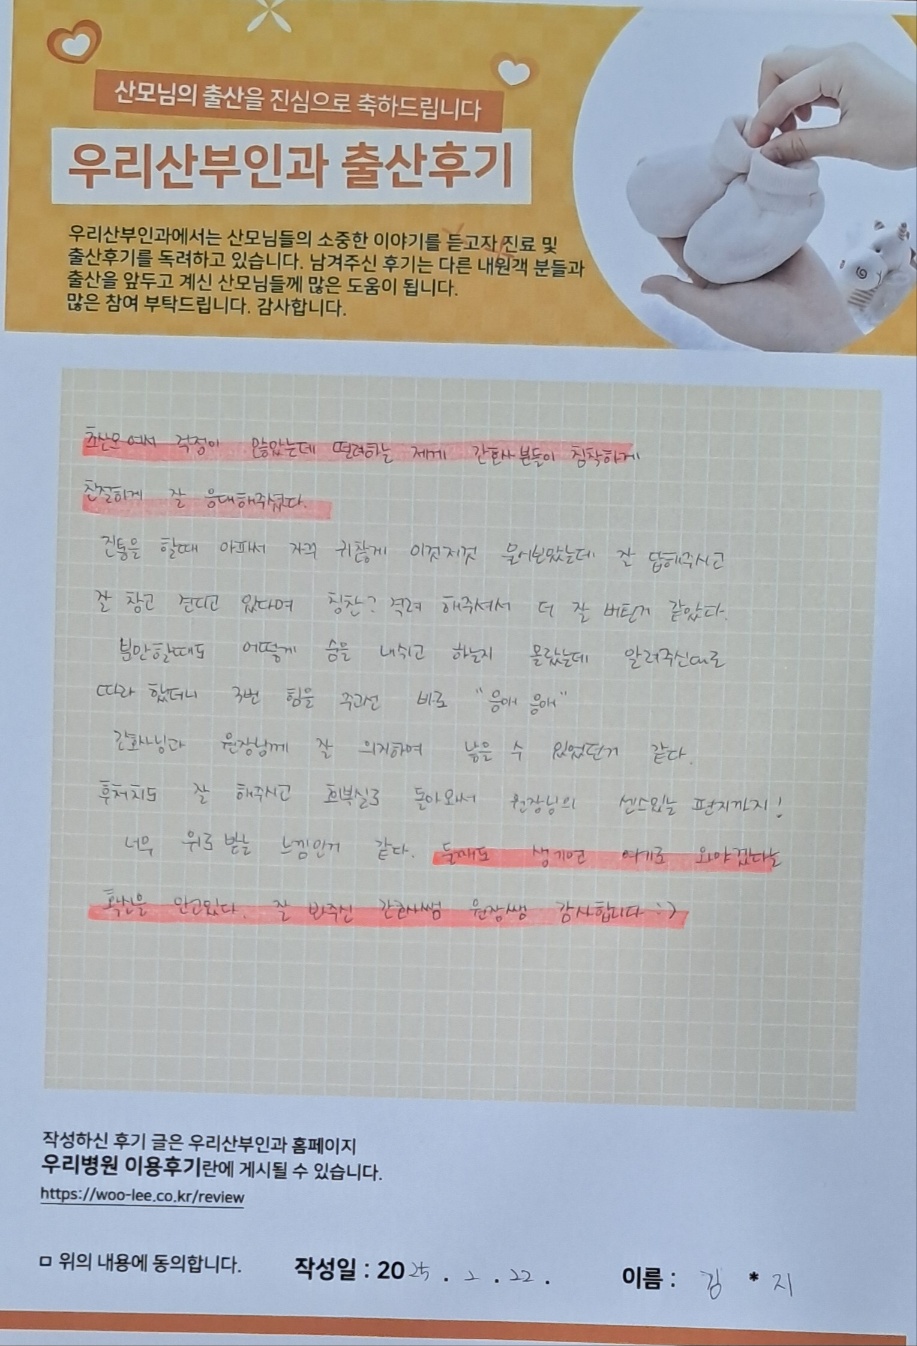 산모님의 출산을 진심으로 축하드립니다
우리산부인과 출산후기
우리산부인과에서는 산모님들의 소중한 이야기를 듣고자 진료 및
출산후기를 독려하고 있습니다. 남겨주신 후기는 다른 내원객 분들과
출산을 앞두고 계신 산모님들께 많은 도움이 됩니다.
많은 참여 부탁드립니다. 감사합니다.
초산모여서 걱정이 많았는데 떨려하는 제게 간호사분들이 침착하게
친절하게 잘 응대해주셨다.
진통을 할때 아파서 자꾸 귀찮게 이것저것 물어봤었는데 잘 답해주시고
잘 참고 견디고 있다며 칭찬? 격려 해주셔서 더 잘 버틴거 같았다.
분만할때도 어떻게 숨을 내쉬고 하는지 몰랐는데 알려주신대로
따라 했더니 3번 힘을 주고선 바로 "응애 응애"
간호사님과 원장님께 잘 의지하여 낳을 수 있었던거 같다.
후처치도 잘 해주시고 회복실로 돌아와서 원장님의 센스있는 편지까지!
너무 위로 받는 느낌인거 같다. 둘째도 생기면 여기로 와야겠다는
확신을 안고있다. 잘 봐주신 간호사쌤 원장쌤 감사합니다 :)
작성하신 후기 글은 우리산부인과 홈페이지
우리병원 이용후기란에 게시될 수 있습니다.
https://woo-lee.co.kr/review
위의 내용에 동의합니다. 작성일 : 2025 . 2 . 22 . 이름 : 김 * 지